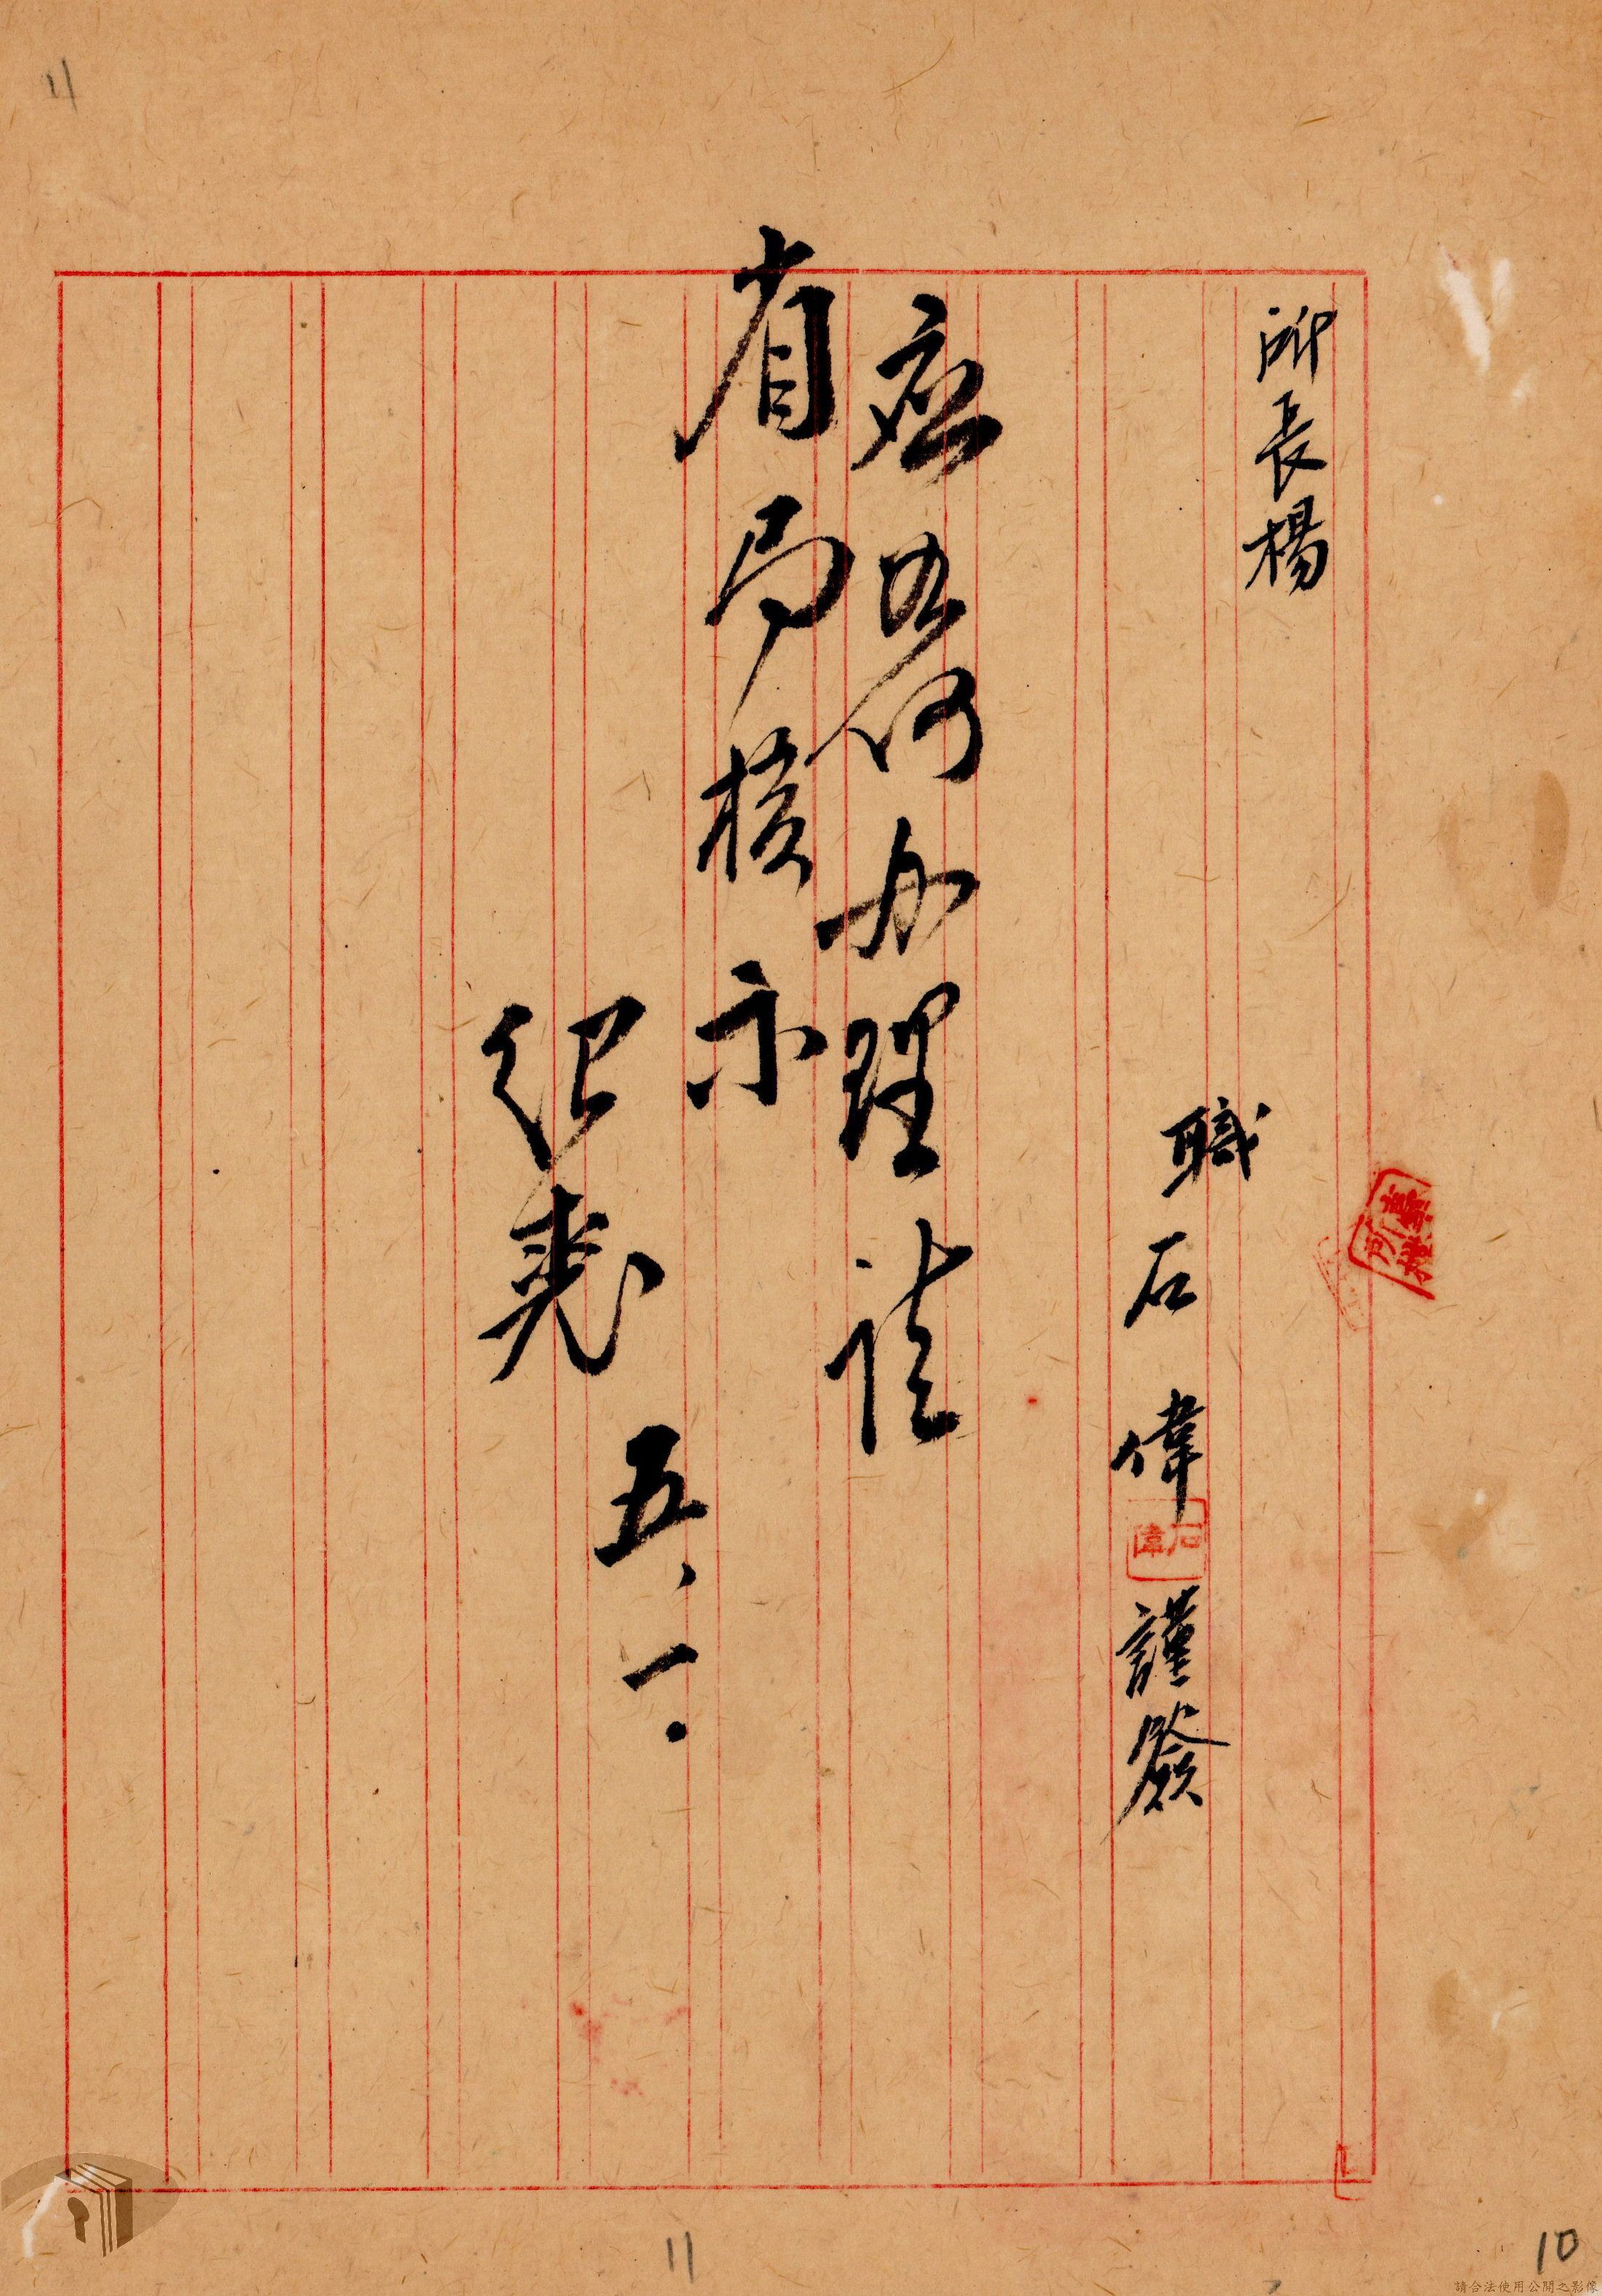 所長楊
職石偉謹簽
石偉
應如何办理請
省局核示
紀堯
五、一.
11
11
10
請合法使用公開之影像